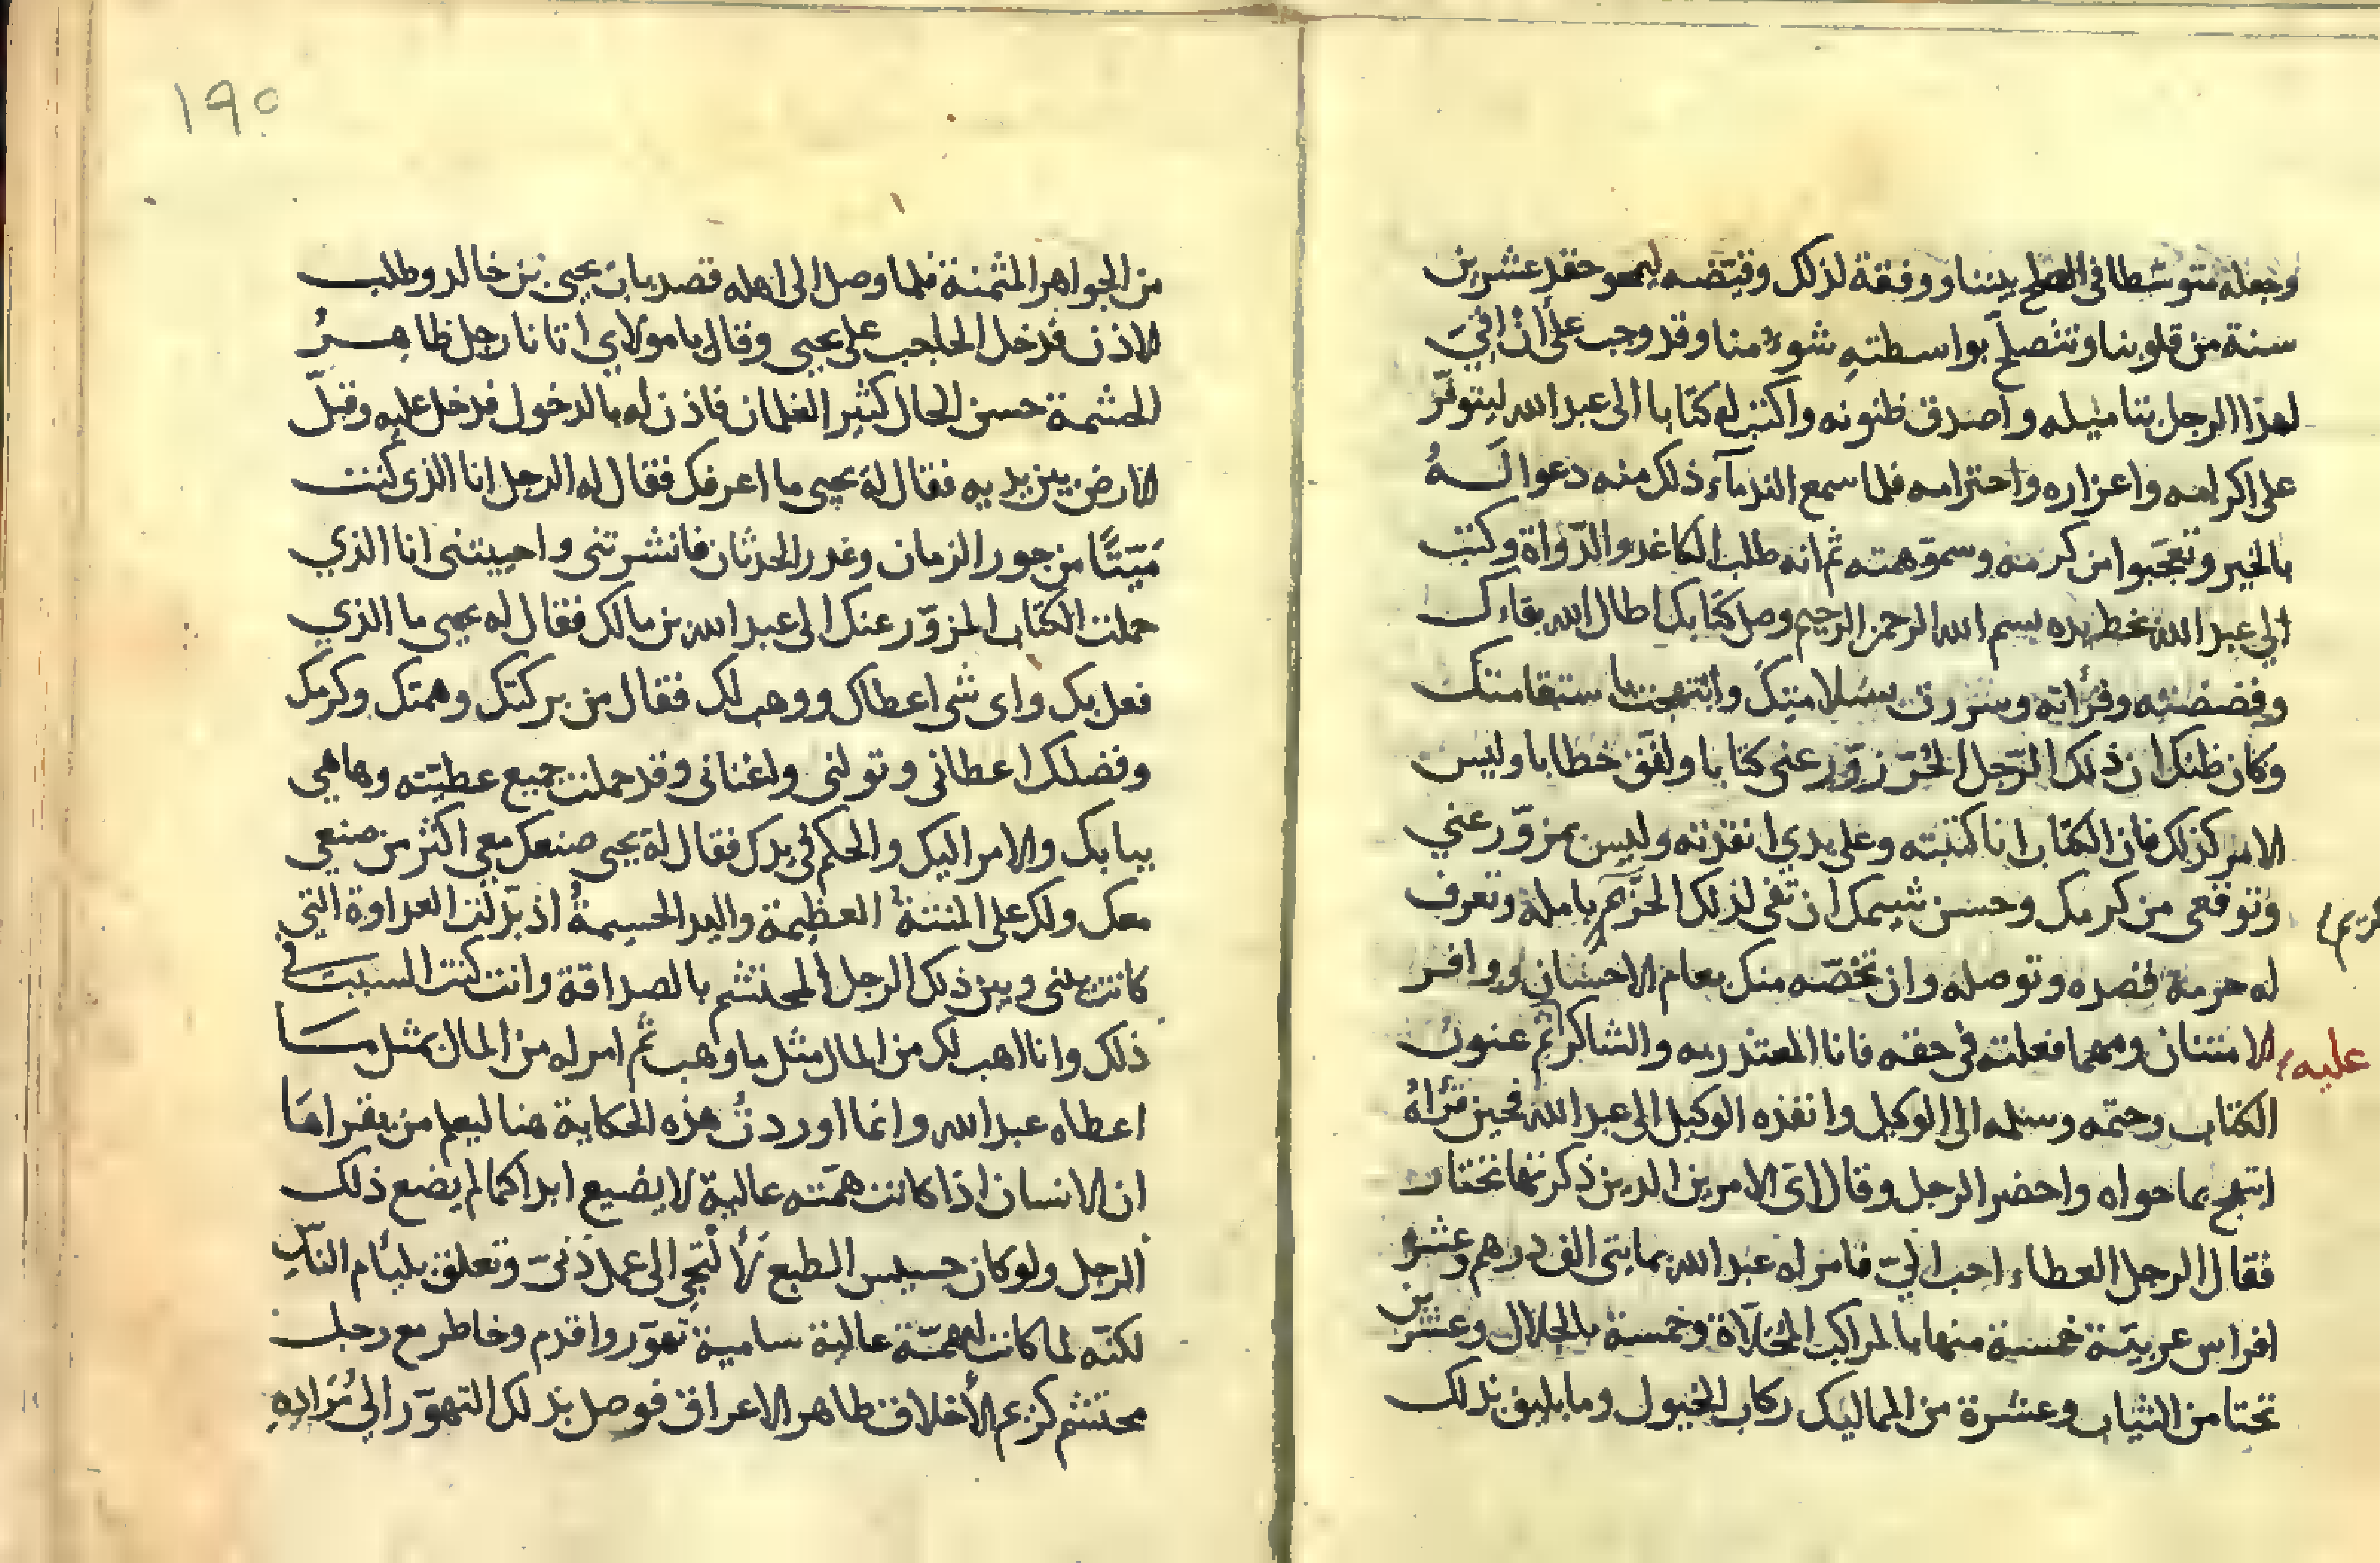 وجعله متوسّطا فى الصلح بيننا ووفقه لذلك وقيّضه ليمحو حقد عشرين
سنة من قلوبنا وتنصلح بواسطتهِ شوءُ منا وقد وجب علىّ ان افىَ
لهذا الرجل بتاميله واصدق ظنونه واكتب له كتابا الى عبد الله ليتوفّر
على اكرامه واعزازه واحترامه فلما سمع الندمآء ذلك منه دعوا لَهُ
بالخير وتعجّبوا من كرمه وسموّ همته ثم انه طلب الكاغد والدّواة وكتب
الي عبد الله بخط يده بسم الله الرحمن الرحيم وصل كتابك اطال الله بقاءك
وفضضته وقرأته وسررت بسلامتِكَ وابتهجت باستقامتك
وكان ظنك ان ذلك الرّجل الحُرّ زوّر عني كتابا ولفّق خطابا وليس
الامر كذلك فان الكتاب انا كتبته وعلى يدي انفذته وليس بمزوّر عني
وتوقعى من كرمك وحسن شيمك ان تفى لذلك الحُرّ بامله وتعرف
كريم
له حرمة قصده وتوصله وان تخصّه منك بعام الاحسان ووافر
الامتنان ومهما فعلته فى حقه فانا المعتذر به والشاكر ثم عنون
عليه
الكتاب وختمه وسلمه الى الوكيل وانفذه الوكيل الى عبد الله فحين قرأهُ
ابتهج بما حواه واحضر الرجل وقال اىّ الامرين الذين ذكرتهما تختار
فقال الرجل العطاء احب اليّ فامر له عبد الله بمايتى الف درهم وعشرة
افراس عربيّة خمسة منها بالمراكب المحلاّة وخمسة بالجلال وعشرين
تختا من الثياب وعشرة من المماليك ركاب الخيول وما يليق بذلك
١٩٥
من الجواهر المثمنة فلما وصل الى اهله قصد باب يحيى بن خالد وطلب
الاذن فدخل الحاجب على يحيى وقال يا مولاي اتانا رجل ظاهِرُ
الحشمة حسن الحال كثير الغلمان فاذن له بالدخول فدخل عليه وقبّل
الارض بين يديه فقال له يحيى ما اعرفك فقال له الرجل انا الذى كنت
مَيّتًا من جور الزمان وغدر الحدثان فانشرتنى واحييتنى انا الذي
حملت الكتاب المزوّر عنك الى عبد الله بن مالك فقال له يحيى ما الذي
فعل بك واى شى اعطاك ووهب لك فقال من بركتك وهمتك وكرمك
وفضلك اعطانى وتولنى واغنانى وقد حملت جميع عطيّته وها هي
ببابك والامر اليك والحكم فى يدك فقال له يحيى صنعك معى اكثر من صنعي
معك ولك علي المنّةُ العظيمة واليد الجسيمةُ اذ بدّلت العداوة التي
كانت بينى وبين ذلك الرجل المحتشم بالصداقة وانت كنت السبب فى
ذلك وانا اهب لك من المال مثل ما وهب ثُم امر له من المال بمثل مَا
اعطاه عبد الله وانما اوردتُ هذه الحكاية هنا ليعلم من يقراهَا
ان الانسان اذا كانت همّته عالية لا يضيع ابدا كما لم يضع ذلك
الرجل ولو كان خسيس الطبع لألتجى الى عمل دَنىّ وتعلق بليأم النّاسِ
لكنّه لما كانت له همّة عالية سامية تهوّر واقدم وخاطر مع رجل
محتشم كريم الأخلاق طاهر الاعراق فوصل بذلك التهوّر الي مُرَادِهِ